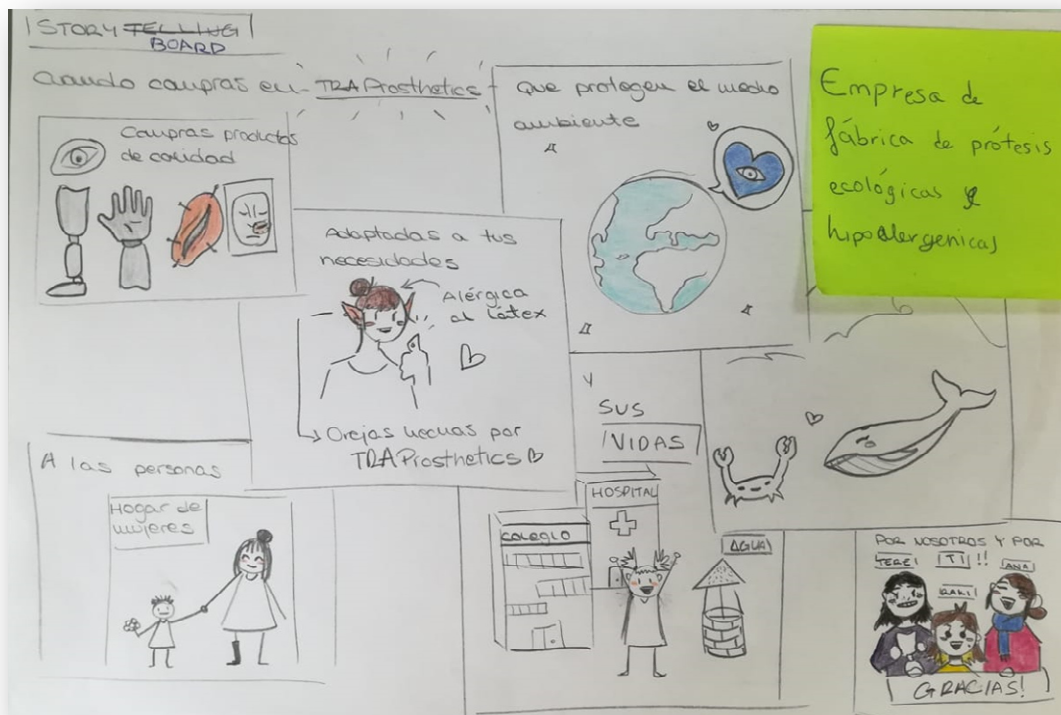 STORY TELLING
BOARD
Cuando compras en TRAProsthetics
Compras productos
de calidad
Adaptadas a tus
necesidades
Alérgica
al Látex
Orejas hechas por
TRAProsthetics
Que protegen el medio
ambiente
Empresa de
fábrica de prótesis
ecológicas y
hipoalergenicas
A las personas
Hogar de
mujeres
Y
SUS
VIDAS
COLEGIO
HOSPITAL
AGUA
POR NOSOTROS Y POR
TI!!
TERE!
RAKI!
ANA!
GRACIAS!